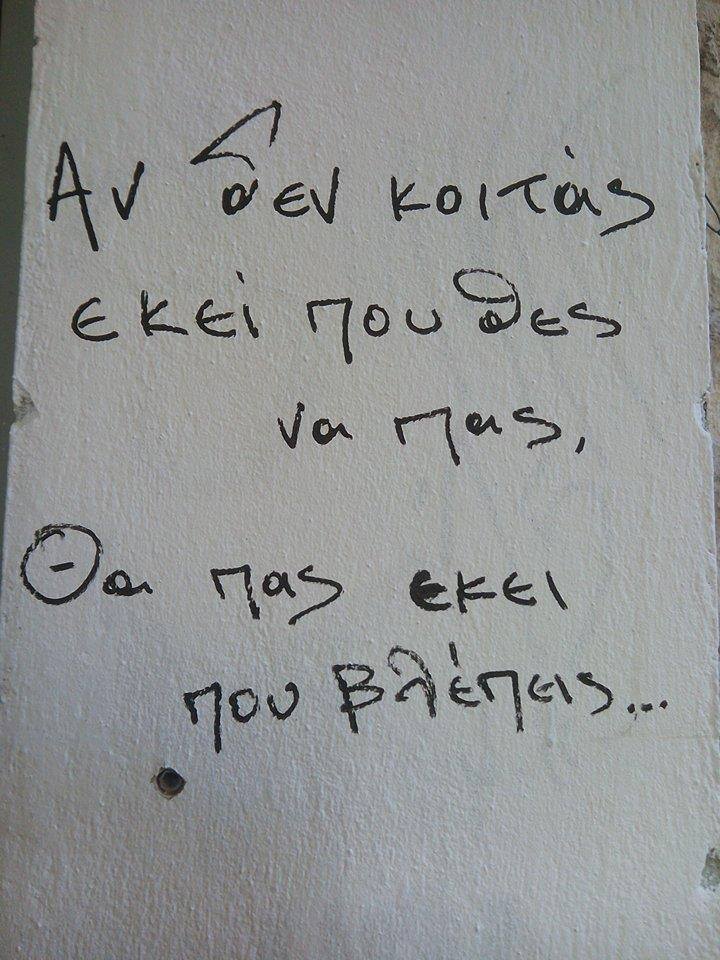 Αν δεν κοιτάς
εκεί που θες
να πας,
Θα πας εκει
που βλέπεις...